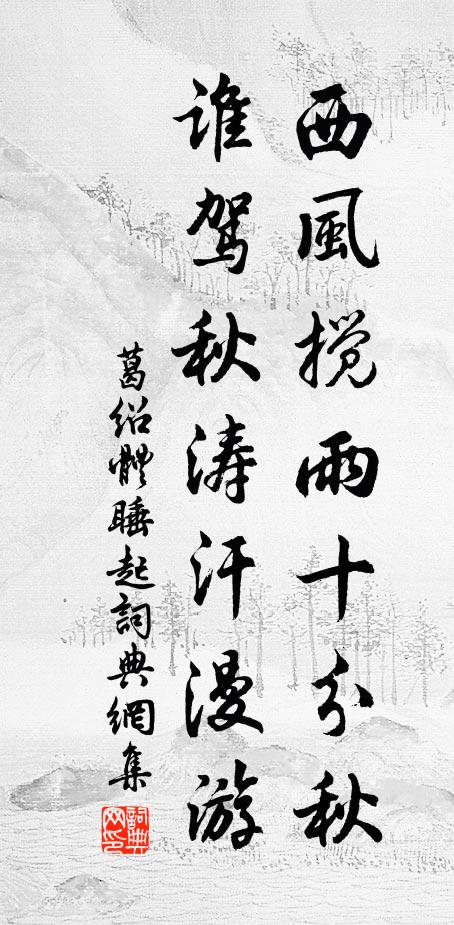 西風攪雨十分秋
誰駕秋濤汗漫游
葛紹體睡起詞典網集
詞典網印